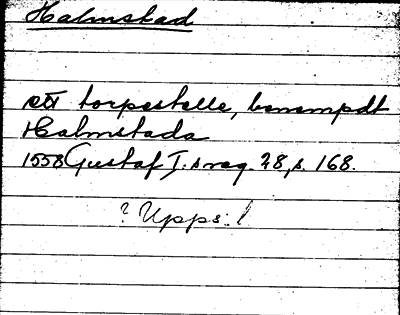 Halmstad
ett torpestelle, benempdt
Halmstada
1558 Gustaf I:s reg. 28, s. 168.
? Upps: l